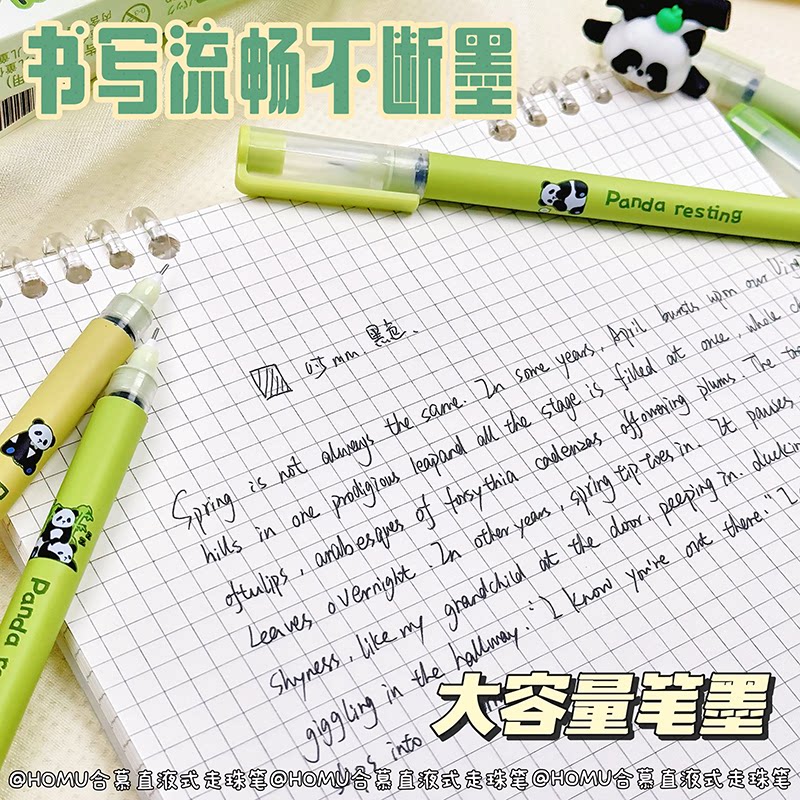 书写流畅不断墨
Panda resting
0.5mm 黑色.
Spring is not always the same. In some years, April bursts upon our Virg
hills in one prodigious leapand all the stage is filled at once, whole
oftulips, arabesques of forsythia cadenzas offlowering plums. The
Leaves overnight. In other years, spring tiptoes in. It pauses
shyness, like my grandchild at the door, peeping in. ducking
giggling in the hallway. "I know you're out there." I
into
Panda re
大容量笔墨
@HOMU合慕直液式走珠笔@HOMU合慕直液式走珠笔@HOMU合慕直液式走珠笔